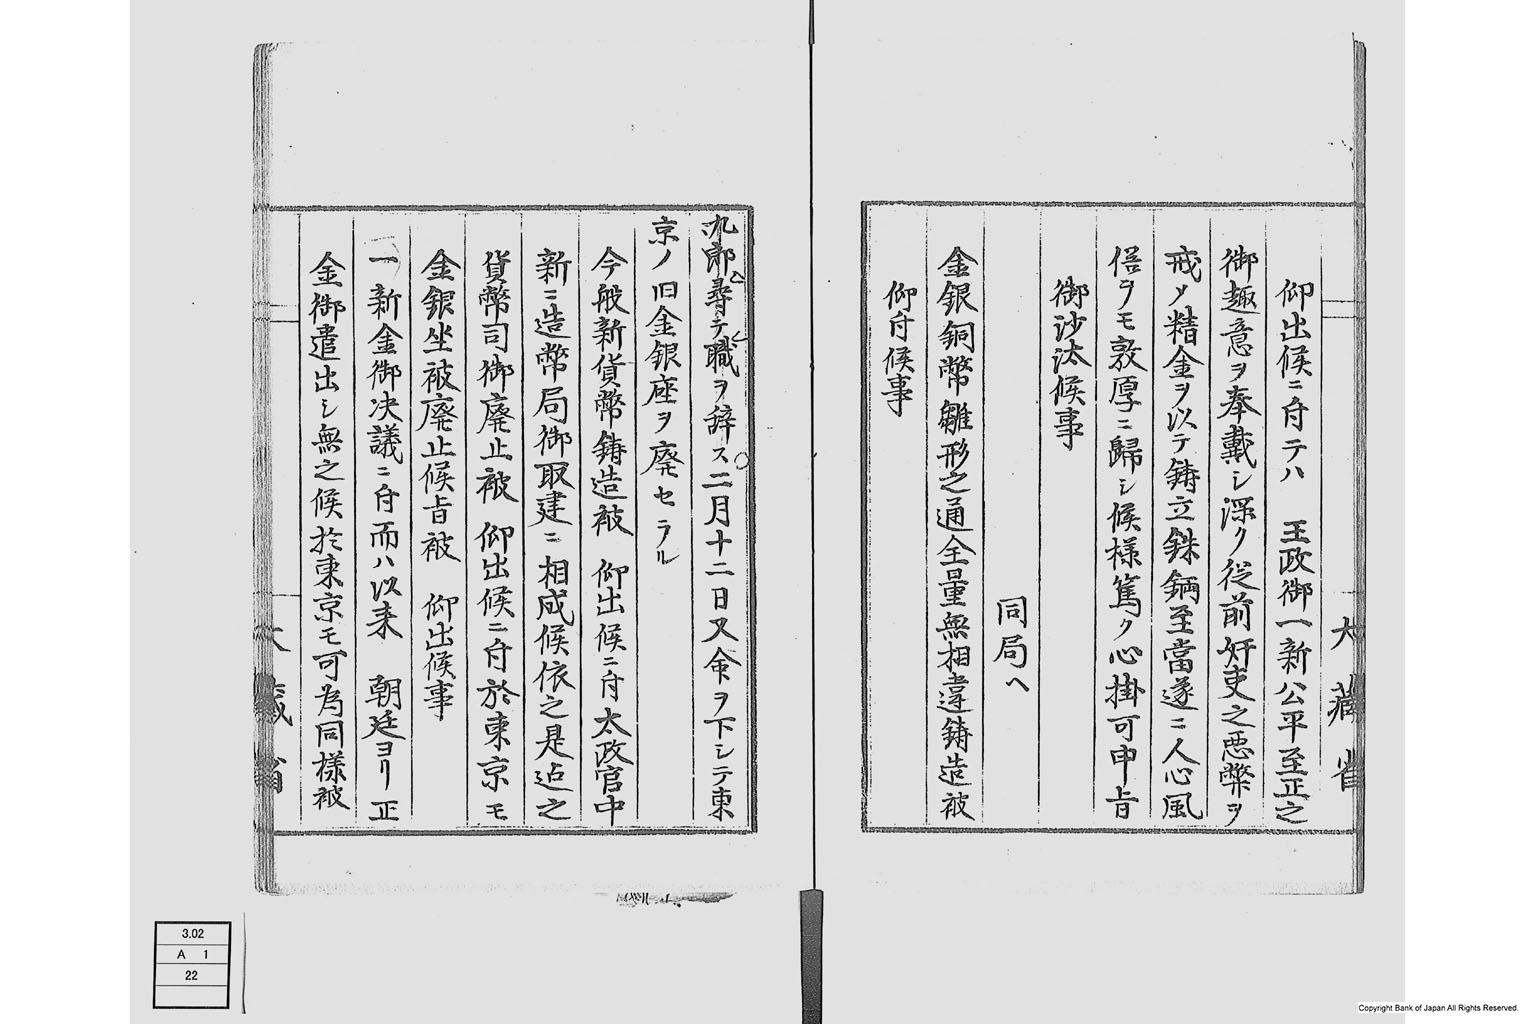 仰出候ニ付テハ　王政御一新公平至正之
御趣意ヲ奉戴シ深ク従前奸吏之悪弊ヲ
戒メ精金ヲ以テ鋳立銖錙至當遂ニ人心風
俗ヲモ敦厚ニ歸シ候様篤ク心掛可申旨
御沙汰候事
同局ヘ
金銀銅幣雛形之通全量無相違鋳造被
仰付候事
大藏省
九郎尋テ職ヲ辞ス二月十二日又命ヲ下シテ東
京ノ旧金銀座ヲ廃セラル
今般新貨幣鋳造被　仰出候ニ付太政官中
新ニ造幣局御取建ニ相成候依之是迠之
貨幣司御廃止被　仰出候ニ付於東京モ
金銀坐被廃止候旨被　仰出候事
一新金御决議ニ付而ハ以来　朝廷ヨリ正
金御遣出シ無之候於東京モ可為同様被
大藏省
3.02
A 1
22
Copyright Bank of Japan All Rights Reserved.